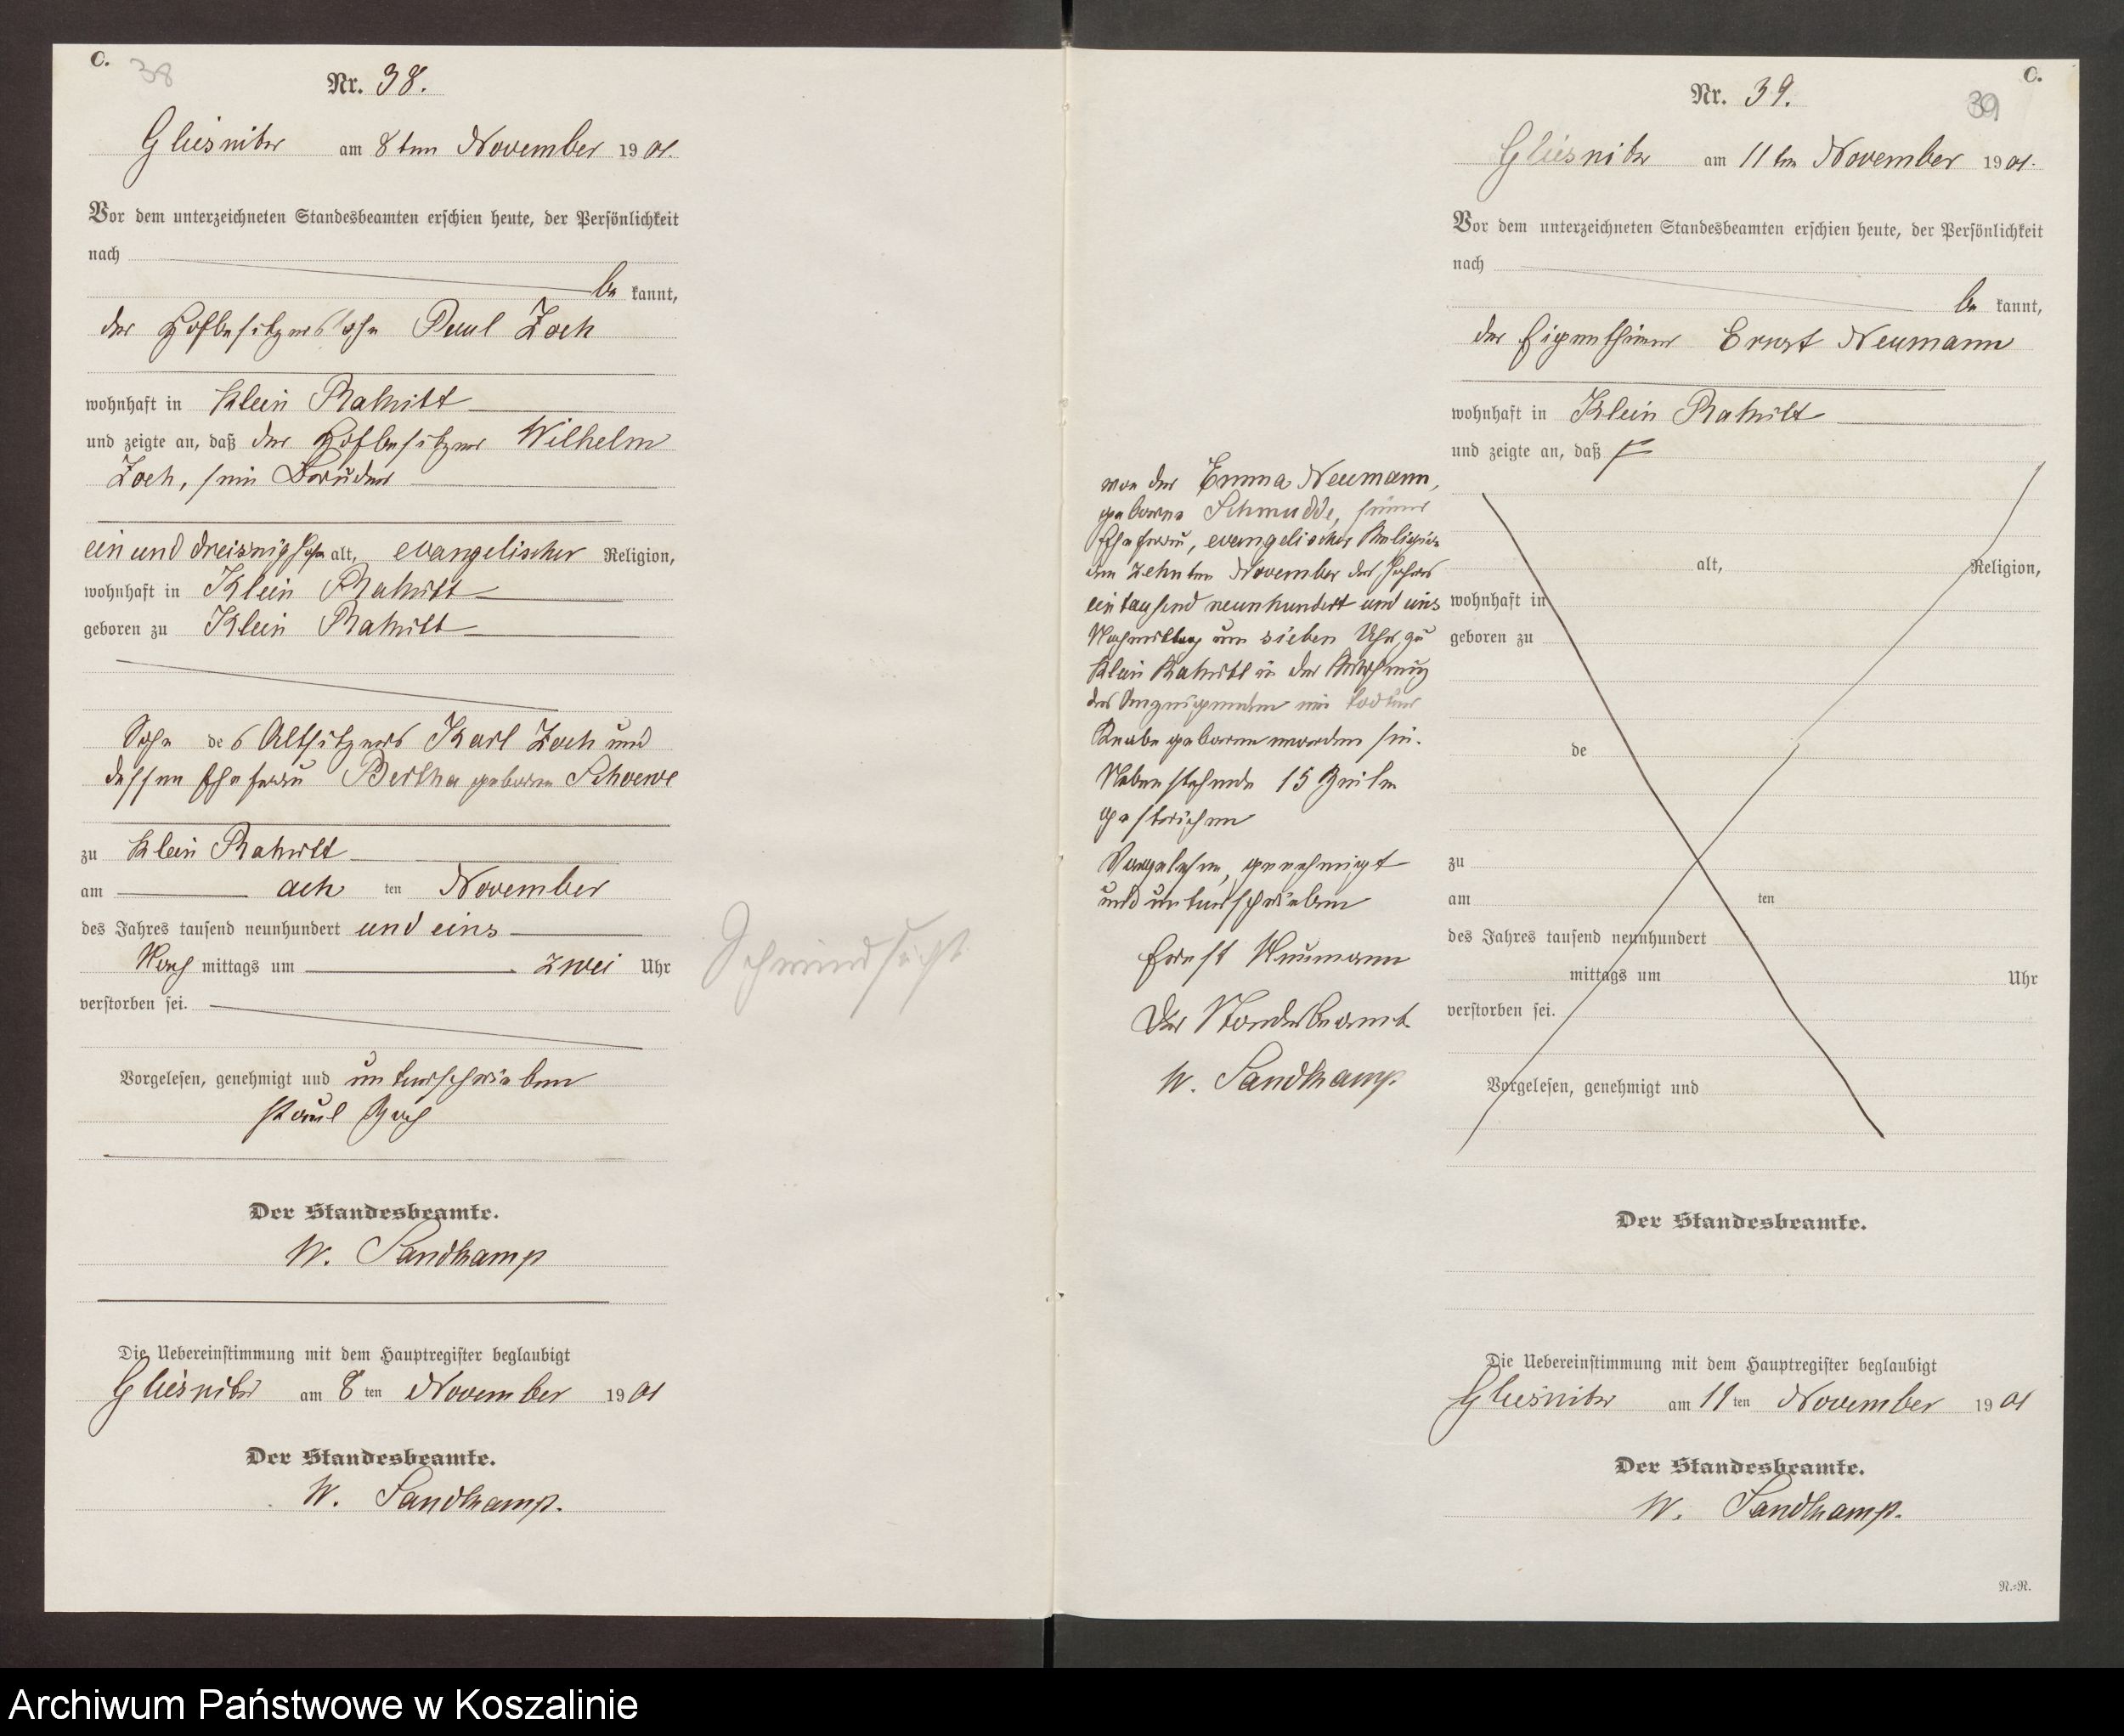 C.
38
Nr. 38.
Gliesnitz am 8ten November 1901.
Vor dem unterzeichneten Standesbeamten erschien heute, der Persönlichkeit
nach
be kannt,
der Hofbesitzersohn Paul Zoch
wohnhaft in Klein Rakitt
und zeigte an, daß der Hofbesitzer Wilhelm
Zoch, sein Bruder
ein und dreissig Jahr alt, evangelischer Religion,
wohnhaft in Klein Rakitt
geboren zu Klein Rakitt
Sohn des Altsitzers Karl Zoch und
dessen Ehefrau Bertha geborene Schoewe
zu Klein Rakitt
am ach ten November
des Jahres tausend neunhundert und eins
Nach mittags um zwei Uhr
verstorben sei.
Vorgelesen, genehmigt und unterschrieben
Paul Zoch
Der Standesbeamte.
W. Sandkamp
Die Uebereinstimmung mit dem Hauptregister beglaubigt
Gliesnitz am 8 ten November 1901
Der Standesbeamte.
W. Sandkamp.
Schwindsucht
C.
39
Nr. 39.
Gliesnitz am 11ten November 1901.
Vor dem unterzeichneten Standesbeamten erschien heute, der Persönlichkeit
nach
be kannt,
der Eigenthümer Ernst Neumann
wohnhaft in Klein Rakitt
und zeigte an, daß
von der Emma Neumann,
geborne Schmudde, seiner
Ehefrau, evangelischer Religion
am zehnten November des Jahres
eintausend neunhundert und eins
Nachmittag um sieben Uhr, zu
Klein Rakitt in der Wohnung
des Anzeigenden ein todter
Knabe geboren worden sei.
Nebenstehende 15 Zeilen
gestrichen
Vorgelesen, genehmigt
und unterschrieben
Ernst Neumann
Der Standesbeamte
W. Sandkamp.
alt, Religion,
wohnhaft in
geboren zu
de
zu
am ten
des Jahres tausend neunhundert
mittags um Uhr
verstorben sei.
Vorgelesen, genehmigt und
Der Standesbeamte.
Die Uebereinstimmung mit dem Hauptregister beglaubigt
Gliesnitz am 11 ten November 1901
Der Standesbeamte.
W. Sandkamp.
N.=N.
Archiwum Państwowe w Koszalinie